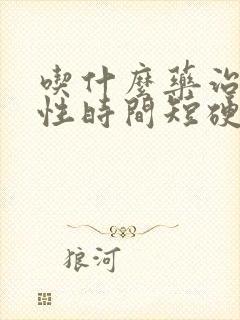 喫什麼藥治
性時間短硬
狼河